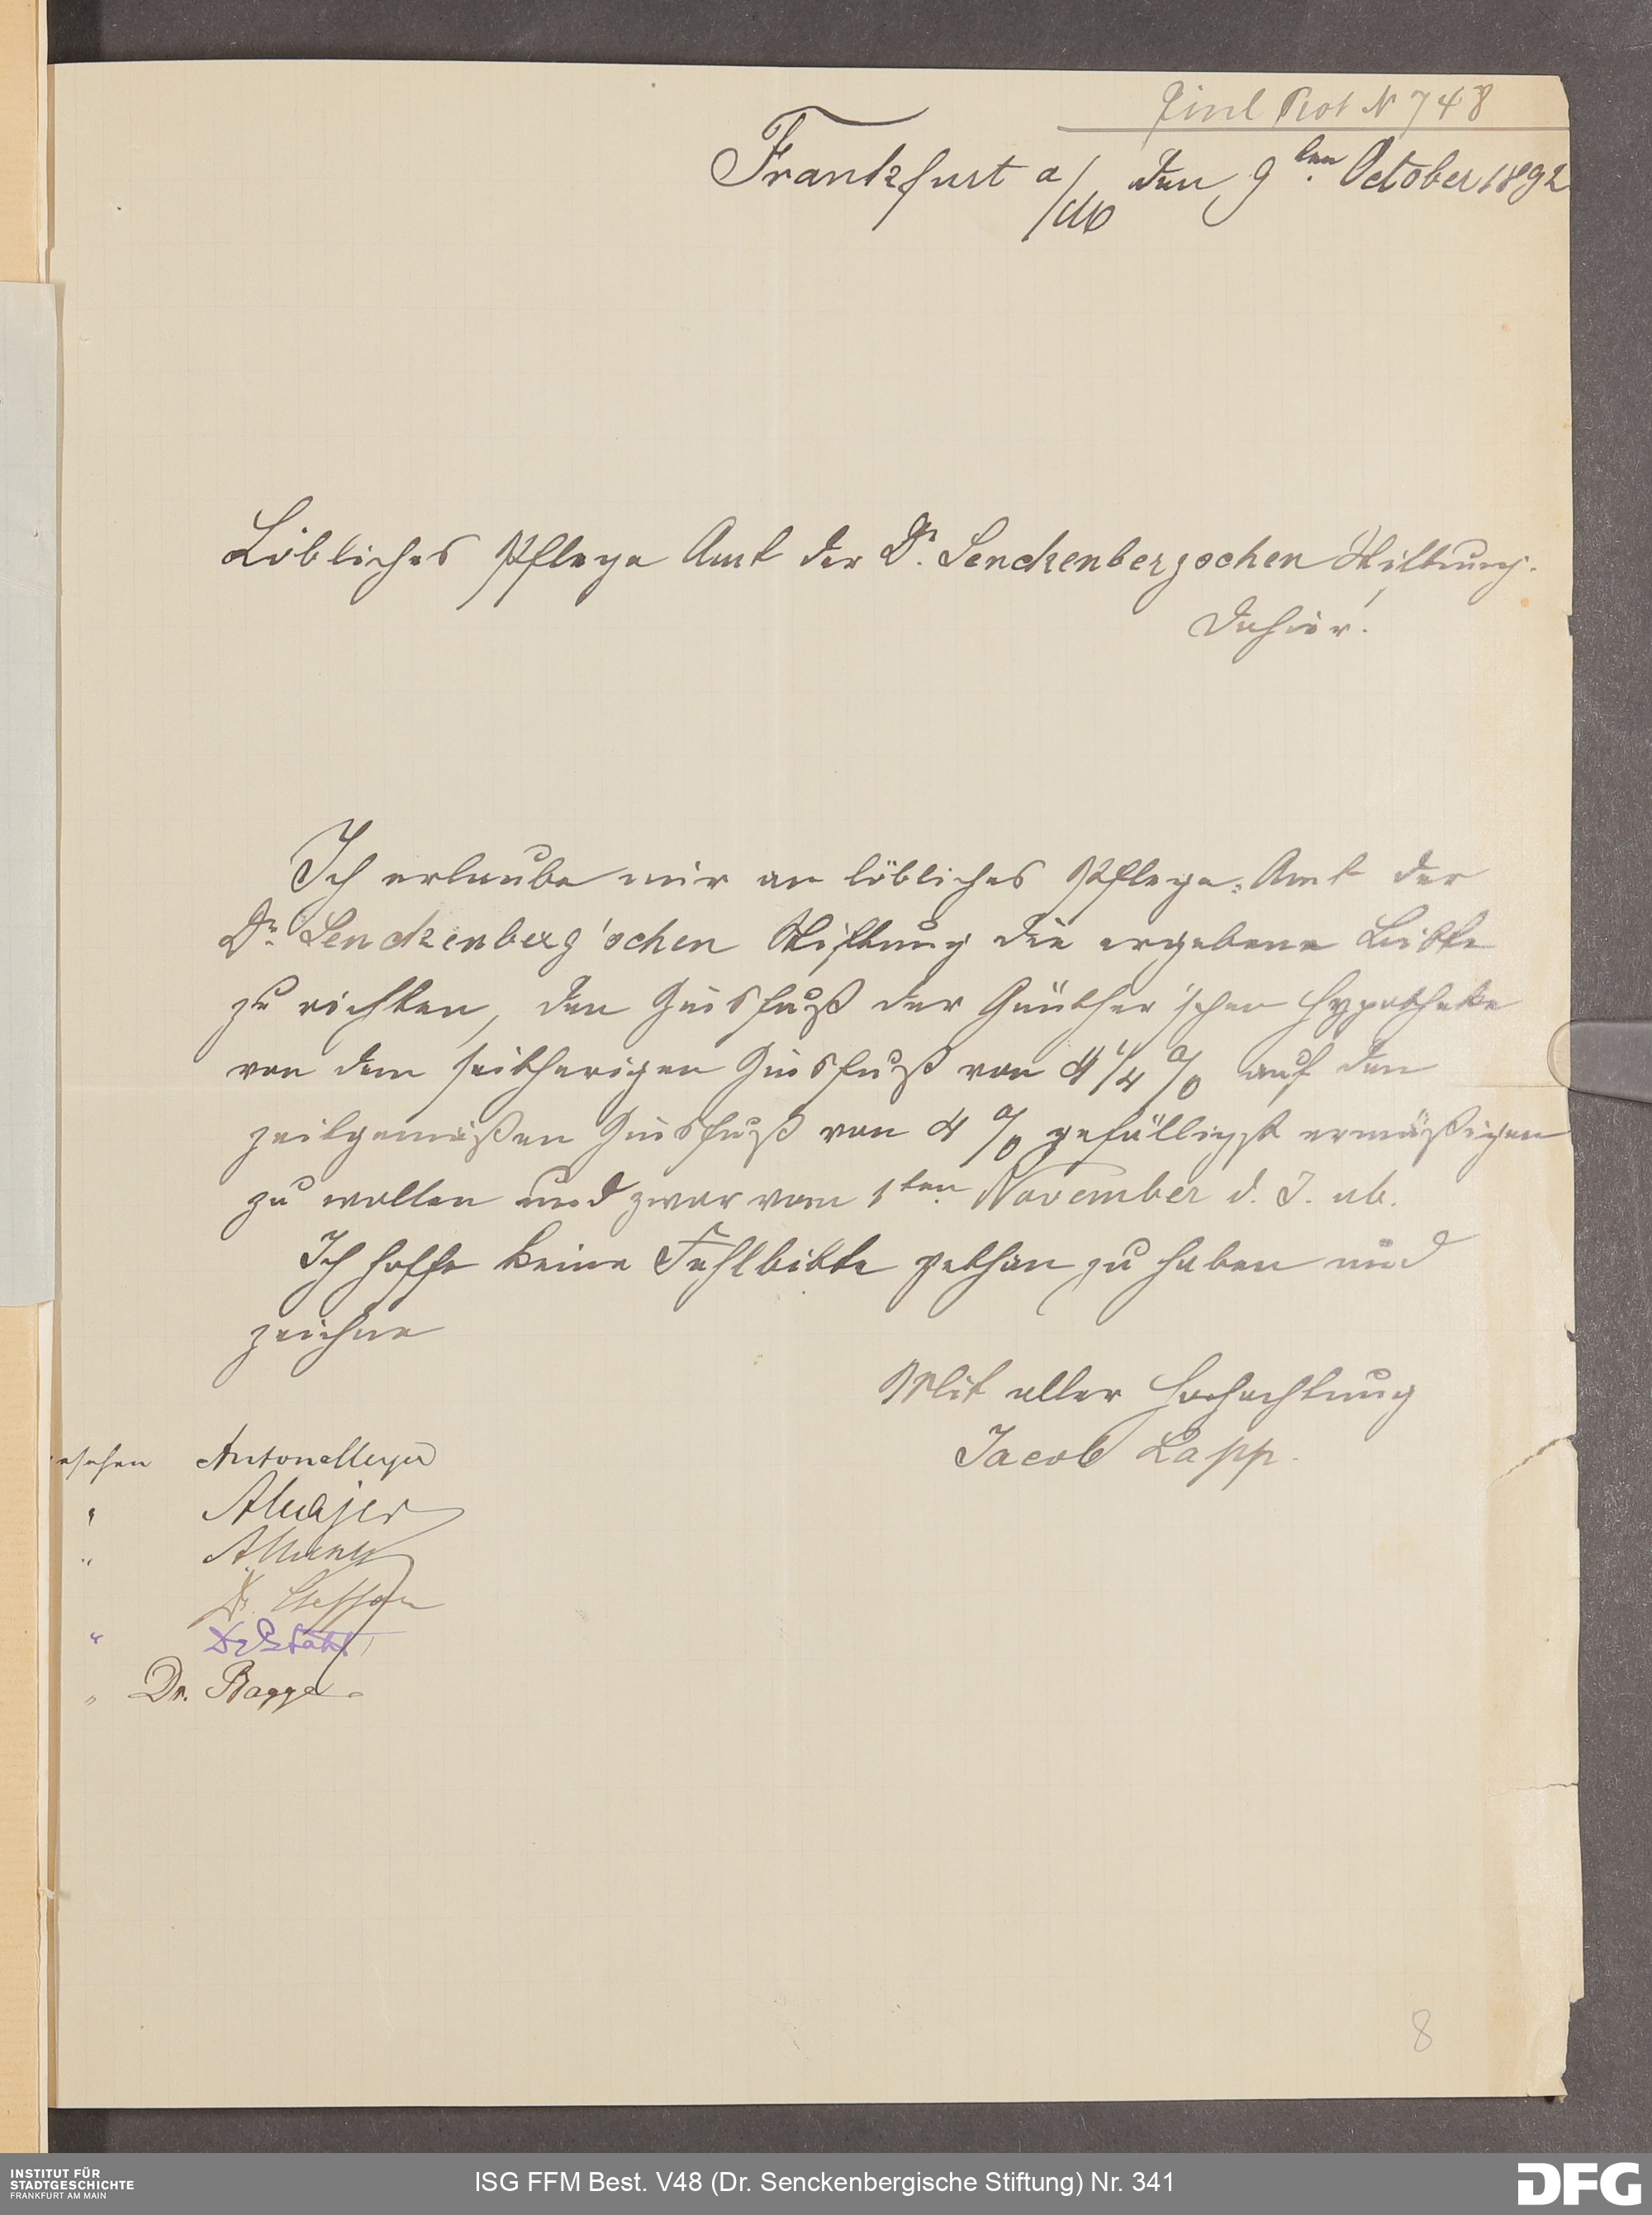 Einl Prot N 748
Frankfurt a/M den 9ten October 1892
Löbliches Pflege Amt der Dr. Senckenbergschen Stiftung.
Dahier!
Ich erlaube mir an löbliches Pflege-Amt der
Dr. Senckenberg'schen Stiftung die ergebene Bitte
zu richten, den Zinsfuß der Günther'schen Hypotheke
von dem seitherigen Zinsfuß von 4 1/4 % auf den
zeitgemäßen Zinsfuß von 4 % gefälligst ermäßigen
zu wollen und zwar vom 1ten November d. J. ab.
Ich hoffe keine Fehlbitte gethan zu haben und
zeichne
Mit aller Hochachtung
Jacob Lapp.
esehen Anton Meyer
" A Majer
"
Dr.
"
" Dr. Bagge
8
INSTITUT FÜR
STADTGESCHICHTE
FRANKFURT AM MAIN
ISG FFM Best. V48 (Dr. Senckenbergische Stiftung) Nr. 341
DFG